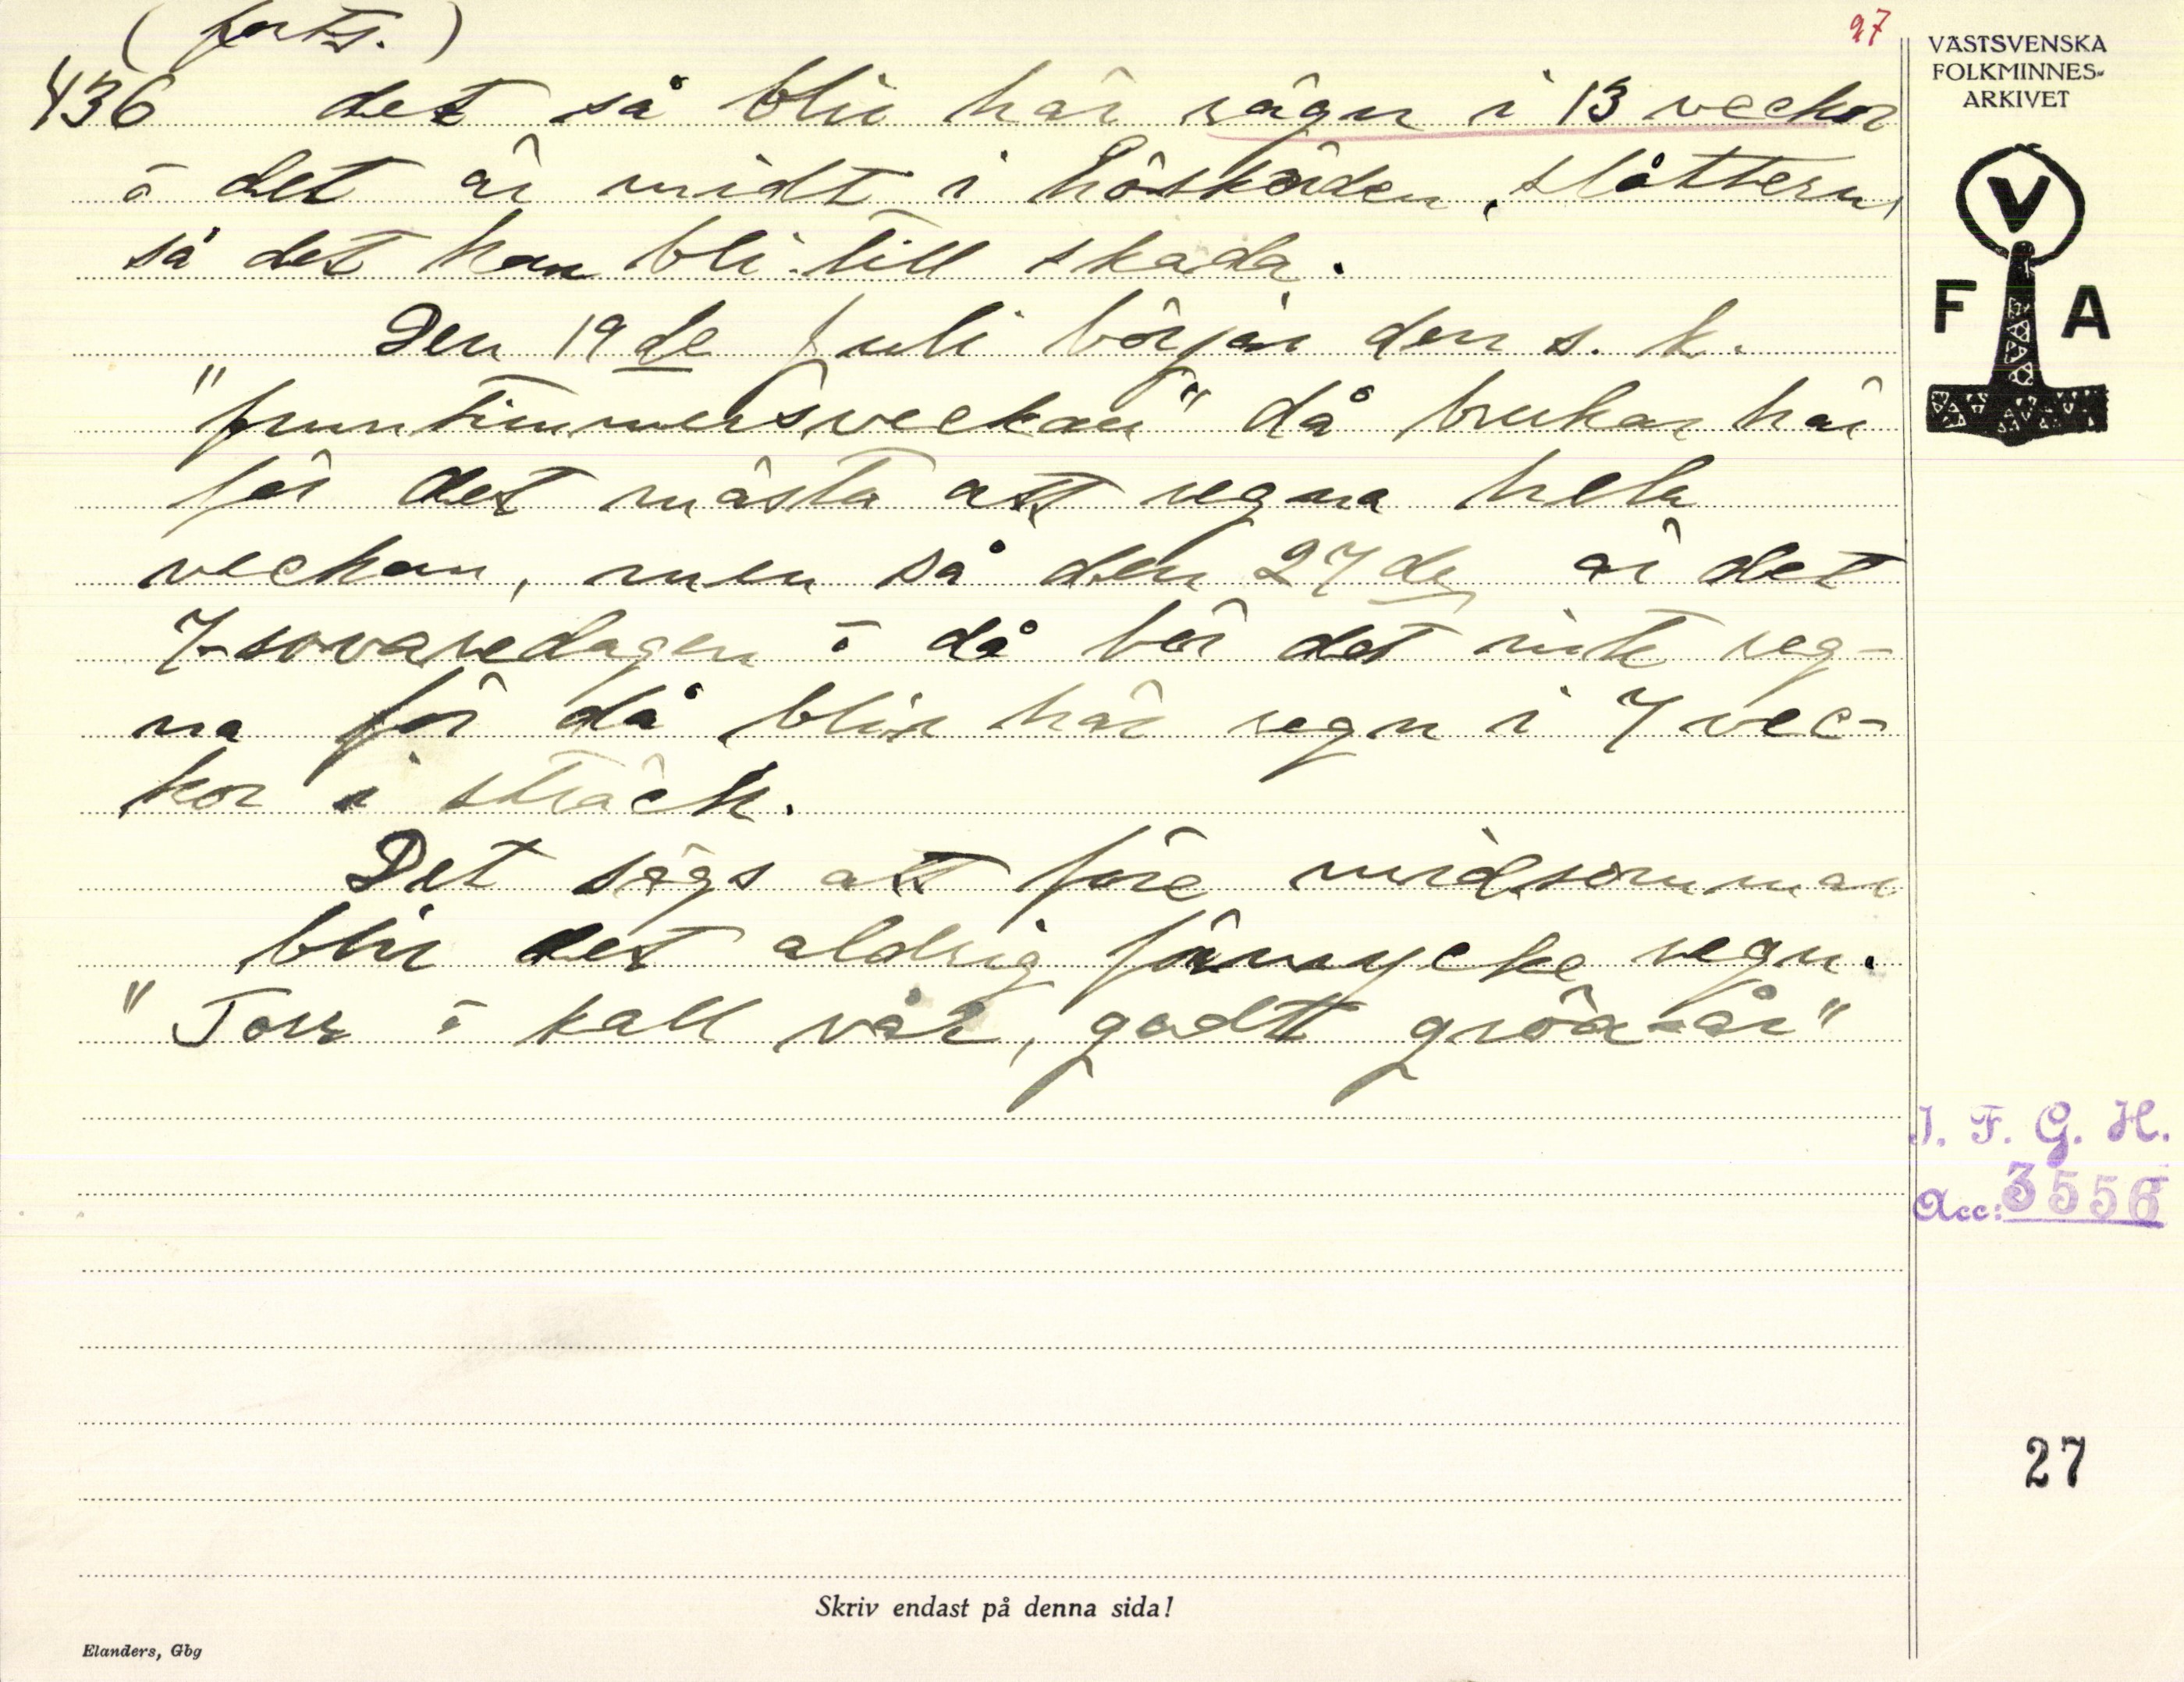 (forts.)
27
VÄSTSVENSKA
FOLKMINNES-
ARKIVET
436 det så blir här rägn i 13 veckor
ō det är midt i höskörden, slåttern,
så det kan bli till skada.
V
F A
Den 19de juli börjar den s. k.
"fruntimmersveckan" då brukar här
för det mästa att regna hela
veckan, men så den 27de är det
7-sovaredagen ō då bör det inte reg-
na för då blir här regn i 7 vec-
kor i sträck.
Det sägs att före midsommar
blir det aldrig förmycke regn.
"Torr ō kall vår, godtt gröa-år"
I. F. G. H.
Acc: 3556
27
Skriv endast på denna sida!
Elanders, Gbg